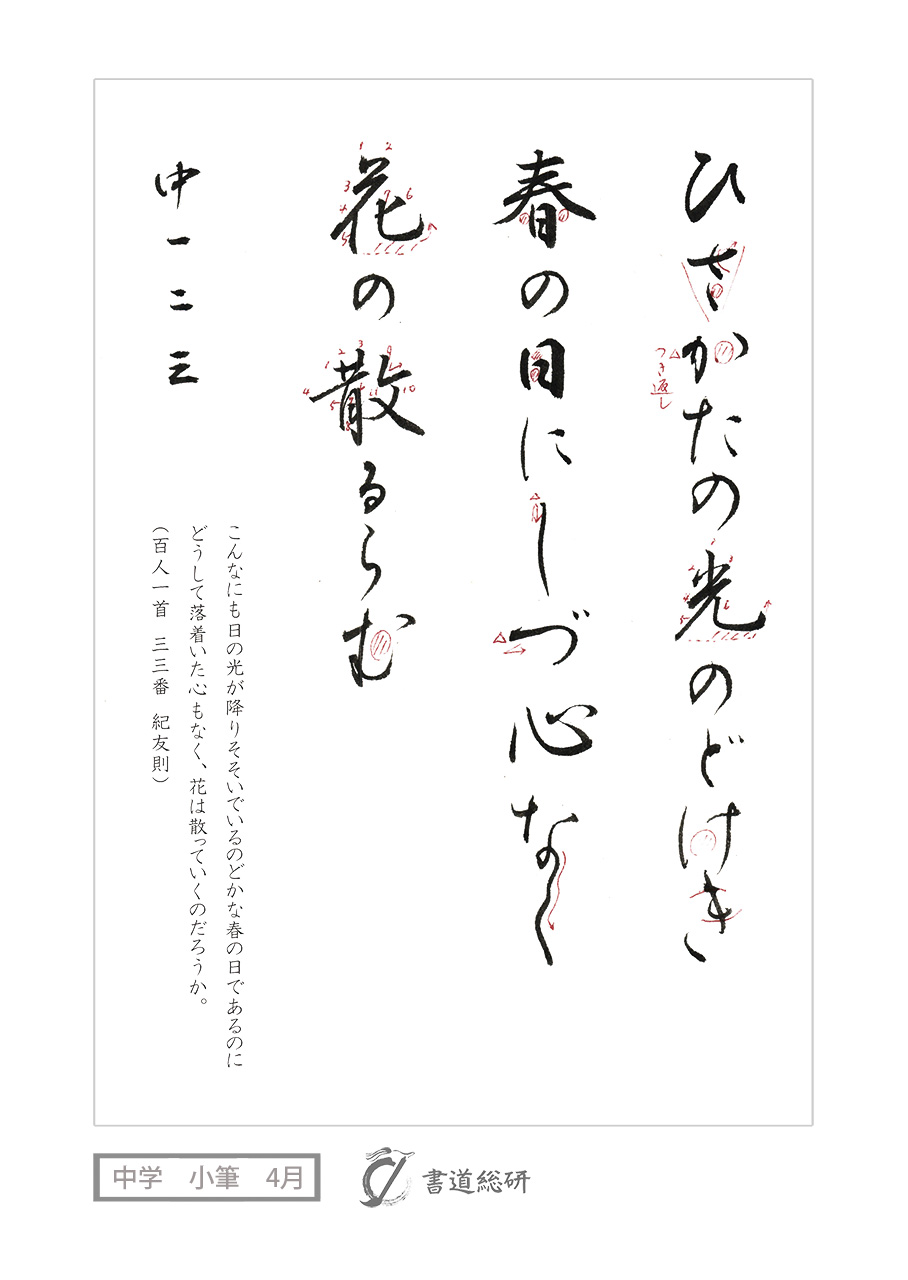 ひさかたの光のどけき
つき返し
春の日にしづ心なく
花の散るらむ
中一二三
こんなにも日の光が降りそそいでいるのどかな春の日であるのに
どうして落着いた心もなく、花は散っていくのだろうか。
（百人一首 三三番 紀友則）
中学 小筆 4月
書道総研